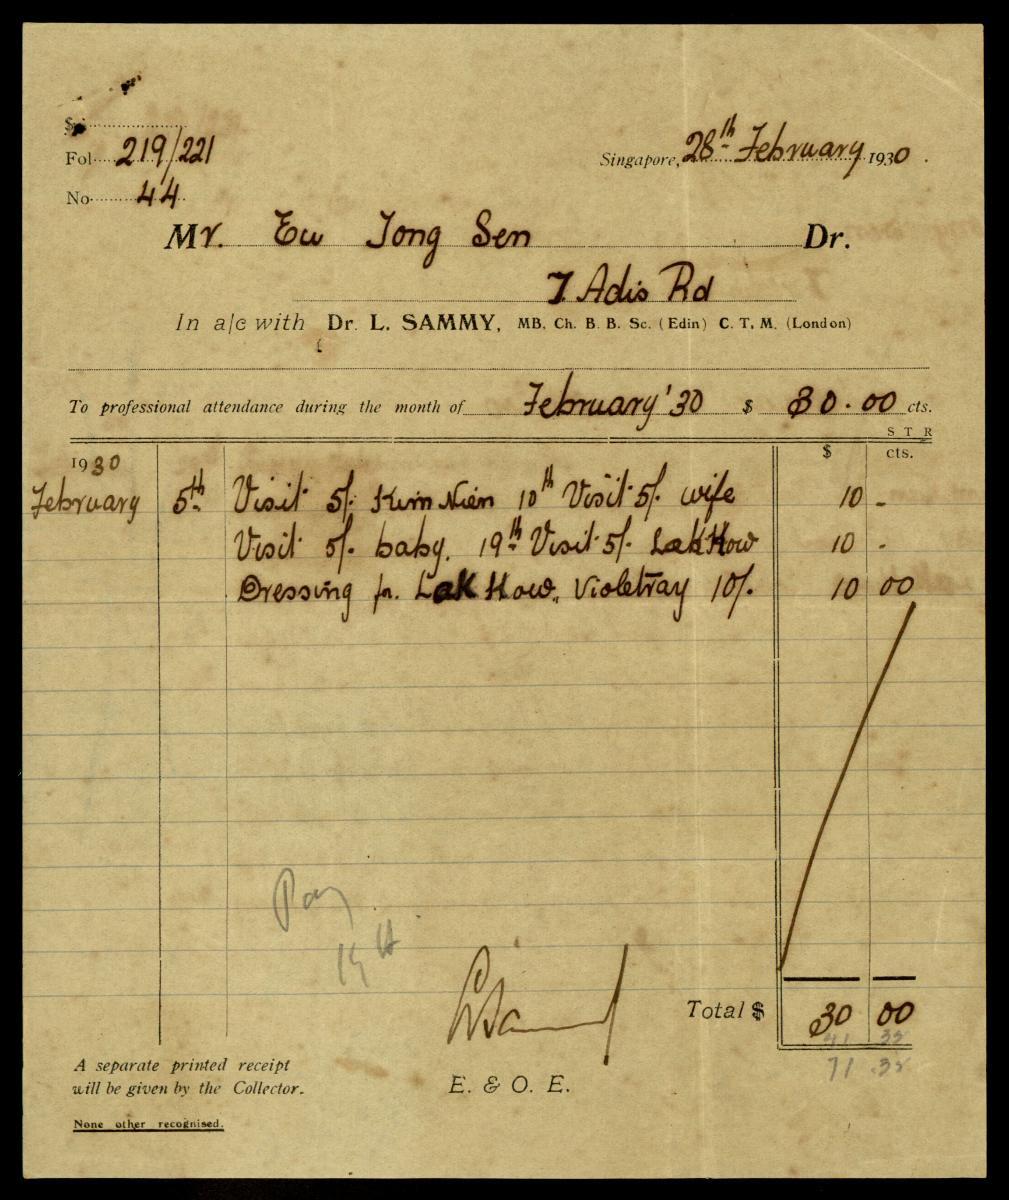 $
Fol 219/221
Singapore, 28th February 1930.
No 44
Mr. Eu Tong Sen Dr.
7 Adis Rd
In a/c with Dr. L. SAMMY, MB. Ch. B. B. Sc. (Edin) C. T. M. (London)
To professional attendance during the month of February '30 $ 30.00 cts.
S T R
1930 $ cts.
February 5th Visit 5/- Kum Nien 10th Visit 5/- wife 10 -
Visit 5/- baby. 19th Visit 5/- Lak How 10 -
Dressing for Lak How. Violetray 10/- 10 00
Pay
Total $ 30 00
41 35
71.35
A separate printed receipt
will be given by the Collector.
E. & O. E.
None other recognised.